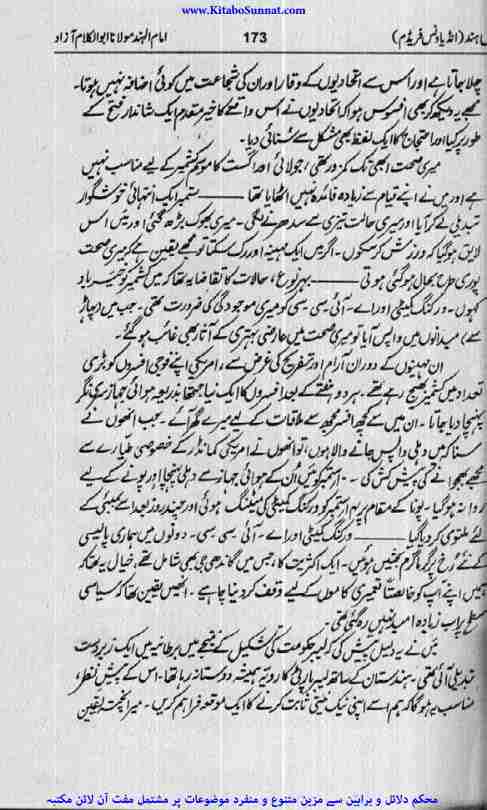 www.KitaboSunnat.com
ہند (انڈیا ونس فریڈم)
173
امام الہند مولانا ابوالکلام آزاد
چلا جاتا ہے اور اس سے اتحادیوں کے وقار اور ان کی شجاعت میں کوئی اضافہ نہیں ہوتا۔
مجھے یہ دیکھ کر بھی افسوس ہوا کہ اتحادیوں نے اس واقعے کا خیر مقدم ایک شاندار فتح کے
طور پر کیا اور احتجاج کا ایک لفظ بھی مشکل سے سنائی دیا۔
میری صحت ابھی تک کمزور تھی، جولائی اور اگست کا موسم کشمیر کے لیے مناسب نہیں
ہے اور میں نے اپنے قیام سے زیادہ فائدہ نہیں اٹھایا تھا ـــــ ستمبر ایک انتہائی خوشگوار
تبدیلی لے کر آیا اور میری حالت تیزی سے سدھرنے لگی۔ میری بھوک بڑھ گئی اور میں اس
لایق ہو گیا کہ ورزش کر سکوں۔ اگر میں ایک مہینہ اور رک سکتا تو مجھے یقین ہے کہ میری صحت
پوری طرح بحال ہو گئی ہوتی ـــــ بہر نوع، حالات کا تقاضا یہ تھا کہ میں کشمیر کو خیرباد
کہوں۔ ورکنگ کمیٹی اور اے۔ آئی۔ سی۔ سی کو میری موجودگی کی ضرورت تھی۔ جب میں (پہاڑ
سے) میدانوں میں واپس آیا تو میری صحت میں عارضی بہتری کے آثار بھی غائب ہو گئے۔
ان مہینوں کے دوران آرام اور تفریح کی غرض سے، امریکی اپنے فوجی افسروں کو بڑی
تعداد میں کشمیر بھیج رہے تھے، ہر دو ہفتے کے بعد افسروں کا ایک نیا جتھا بذریعہ ہوائی جہاز سری نگر
پہنچا دیا جاتا۔ ان میں سے کچھ افسر مجھ سے ملاقات کے لیے میرے گھر آئے۔ جب انھوں نے
سنا کہ میں دہلی واپس جانے والا ہوں، تو انھوں نے امریکی کمانڈر کے خصوصی طیارے سے
مجھے بھجوانے کی پیش کش کی۔ ستمبر کو میں اُن کے ہوائی جہاز سے دہلی پہنچا اور پونے کے لیے
روانہ ہو گیا۔ پونا کے مقام پر ستمبر کو ورکنگ کمیٹی کی میٹنگ ہوئی اور چند روز بعد اسے بمبئی کے
لئے ملتوی کر دیا گیا ـــــ ورکنگ کمیٹی اور اے۔ آئی۔ سی۔ سی۔ دونوں میں ہماری پالیسی
کے نئے رُخ پر گرما گرم بحثیں ہوئیں۔ ایک اکثریت کا، جس میں گاندھی جی بھی شامل تھے، خیال یہ تھا کہ
ہمیں اپنے آپ کو خالصتاً تعمیری کاموں کے لیے وقف کر دینا چاہیے۔ انھیں یقین تھا کہ سیاسی
سطح پر اب زیادہ امید نہیں رہ گئی تھی۔
میں نے یہ دلیل پیش کی کہ لیبر حکومت کی تشکیل کے نتیجے میں برطانیہ میں ایک زبردست
تبدیلی آئی تھی۔ ہندستان کے ساتھ لیبر پارٹی کا رویہ ہمیشہ دوستانہ رہا تھا۔ اس کے پیش نظر،
مناسب یہ ہو گا کہ ہم اسے اپنی نیک نیتی ثابت کرنے کا ایک موقعہ فراہم کریں۔ میرا پختہ یقین
محکم دلائل و براہین سے مزین متنوع و منفرد موضوعات پر مشتمل مفت آن لائن مکتبہ